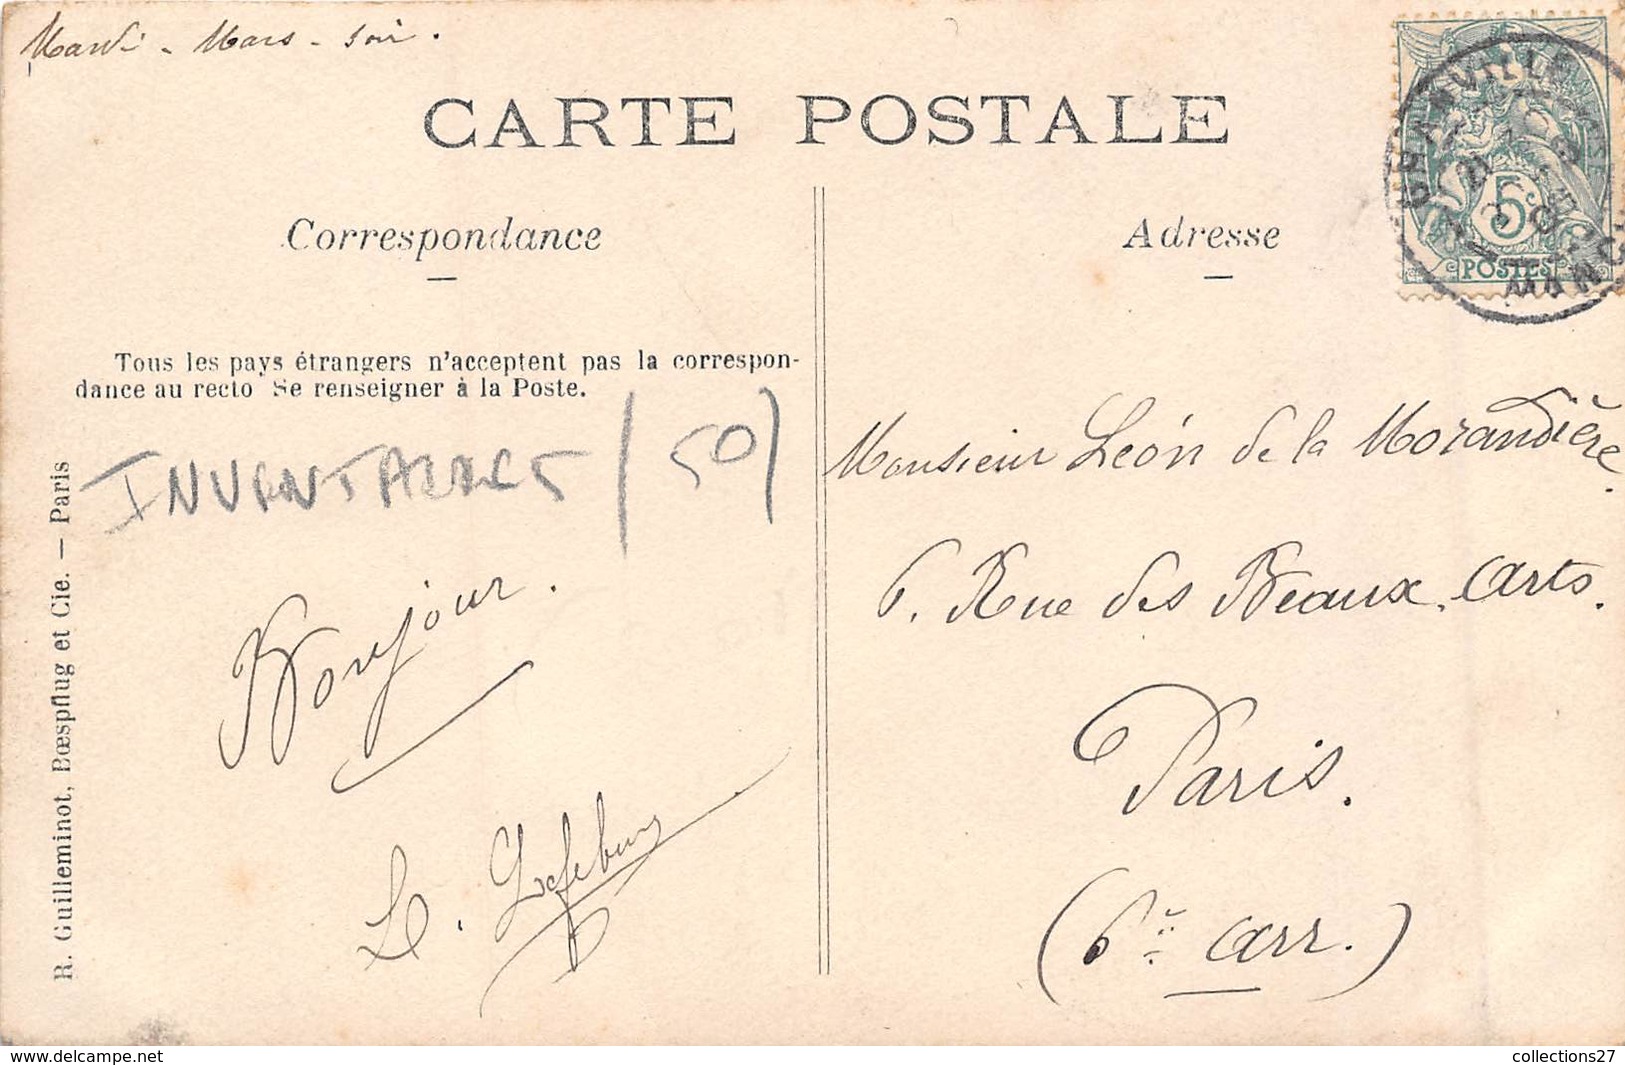 Mardi - Mars - soir.
CARTE POSTALE
Correspondance
Adresse
GRANVILLE
MANCHE
5
POSTES
Tous les pays étrangers n'acceptent pas la correspon-
dance au recto Se renseigner à la Poste.
(50)
Monsieur Léon de la Morandière.
6. Rue des Beaux. Arts.
Paris.
(6e arr.)
Bonjour.
L. Lefebure
R. Guilleminot, Bœspflug et Cie. — Paris
collections27